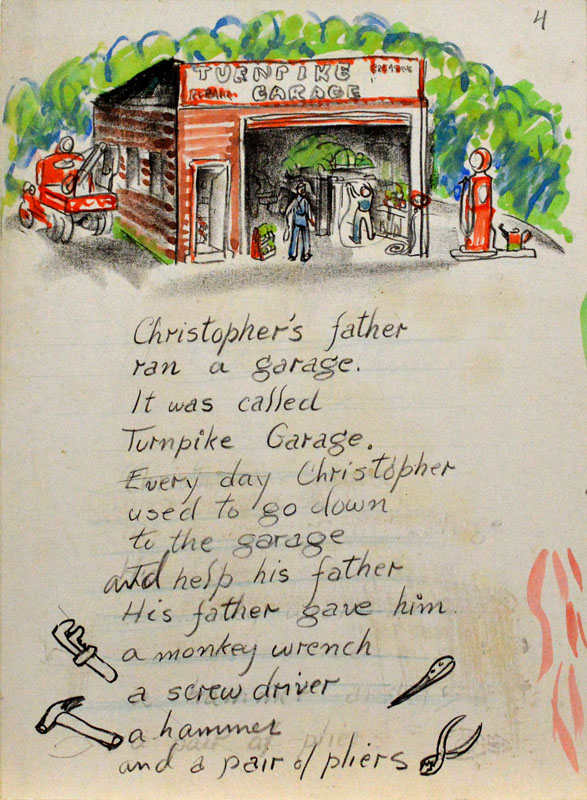 4
TURNPIKE
GARAGE
Christopher's father
ran a garage.
It was called
Turnpike Garage.
Every day Christopher
used to go down
to the garage
and help his father
His father gave him
a monkey wrench
a screw driver
a hammer
and a pair of pliers